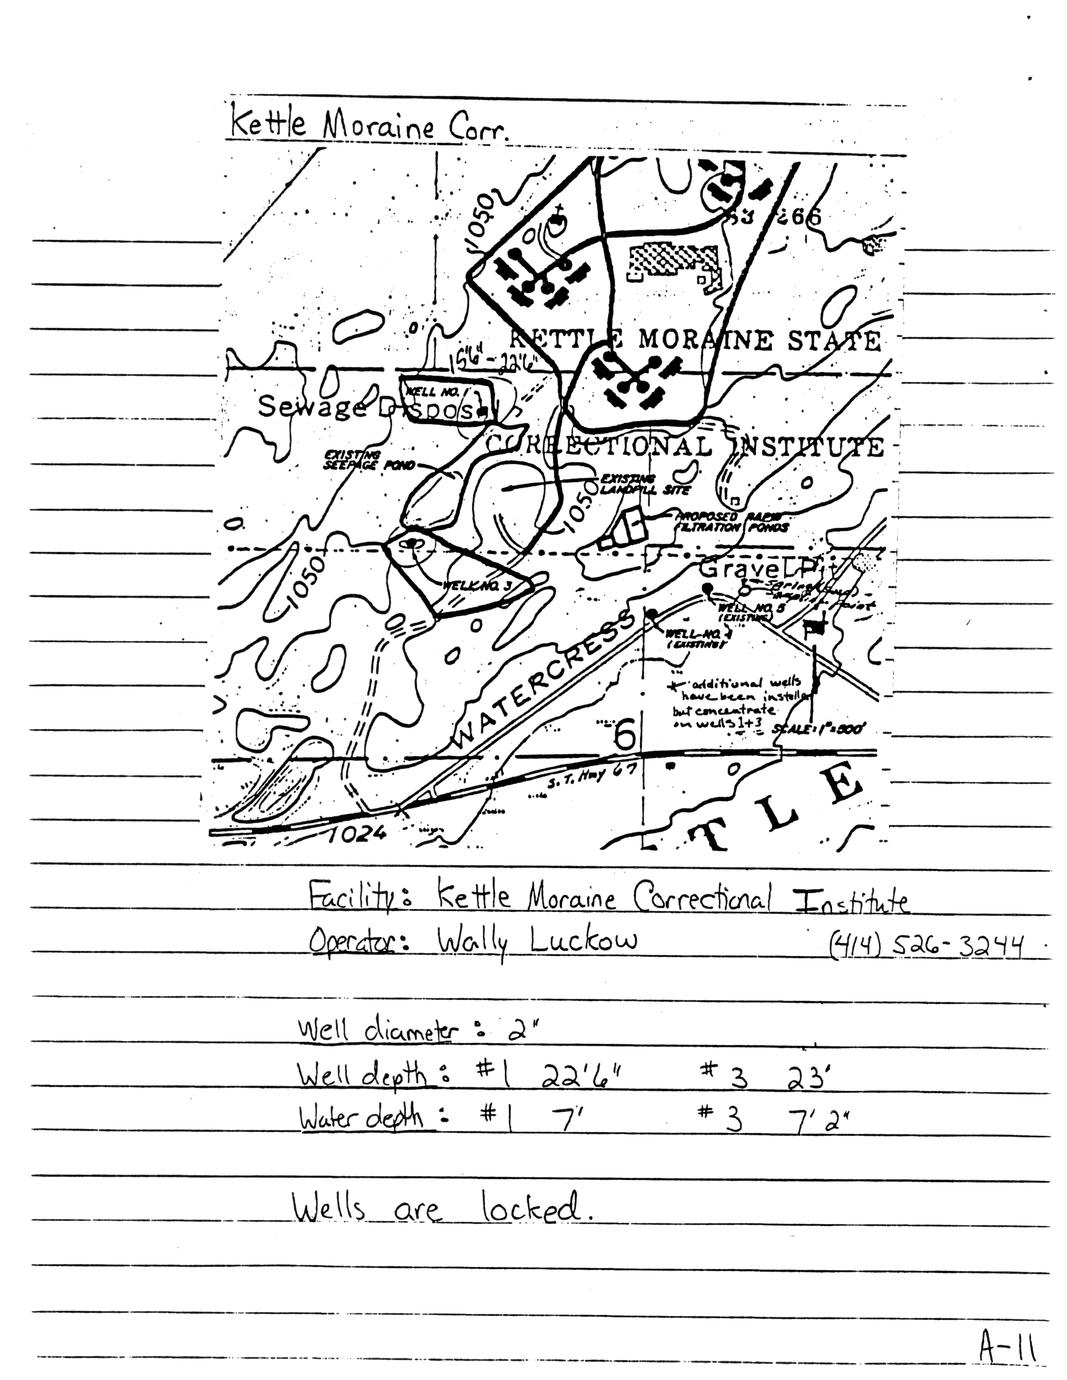 Kettle Moraine Corr.
1050
53 266
KETTLE MORAINE STATE
15'6" - 22'6"
WELL NO. 1
Sewage Disposal
CORRECTIONAL INSTITUTE
EXISTING
SEEPAGE POND
EXISTING
LANDFILL SITE
1050
PROPOSED RAPID
FILTRATION PONDS
Gravel Pit
1050
WELL NO. 3
WELL NO. 5
(EXISTING)
WELL NO.
(EXISTING)
WATERCRESS
* additional wells
have been installed
but concentrate
on wells 1+3
SCALE: 1"=500'
6
S.T. Hwy 67
TLE
1024
Facility: Kettle Moraine Correctional Institute
Operator: Wally Luckow (414) 526-3244
Well diameter: 2"
Well depth: #1 22'6" #3 23'
Water depth: #1 7' #3 7' 2"
Wells are locked.
A-11